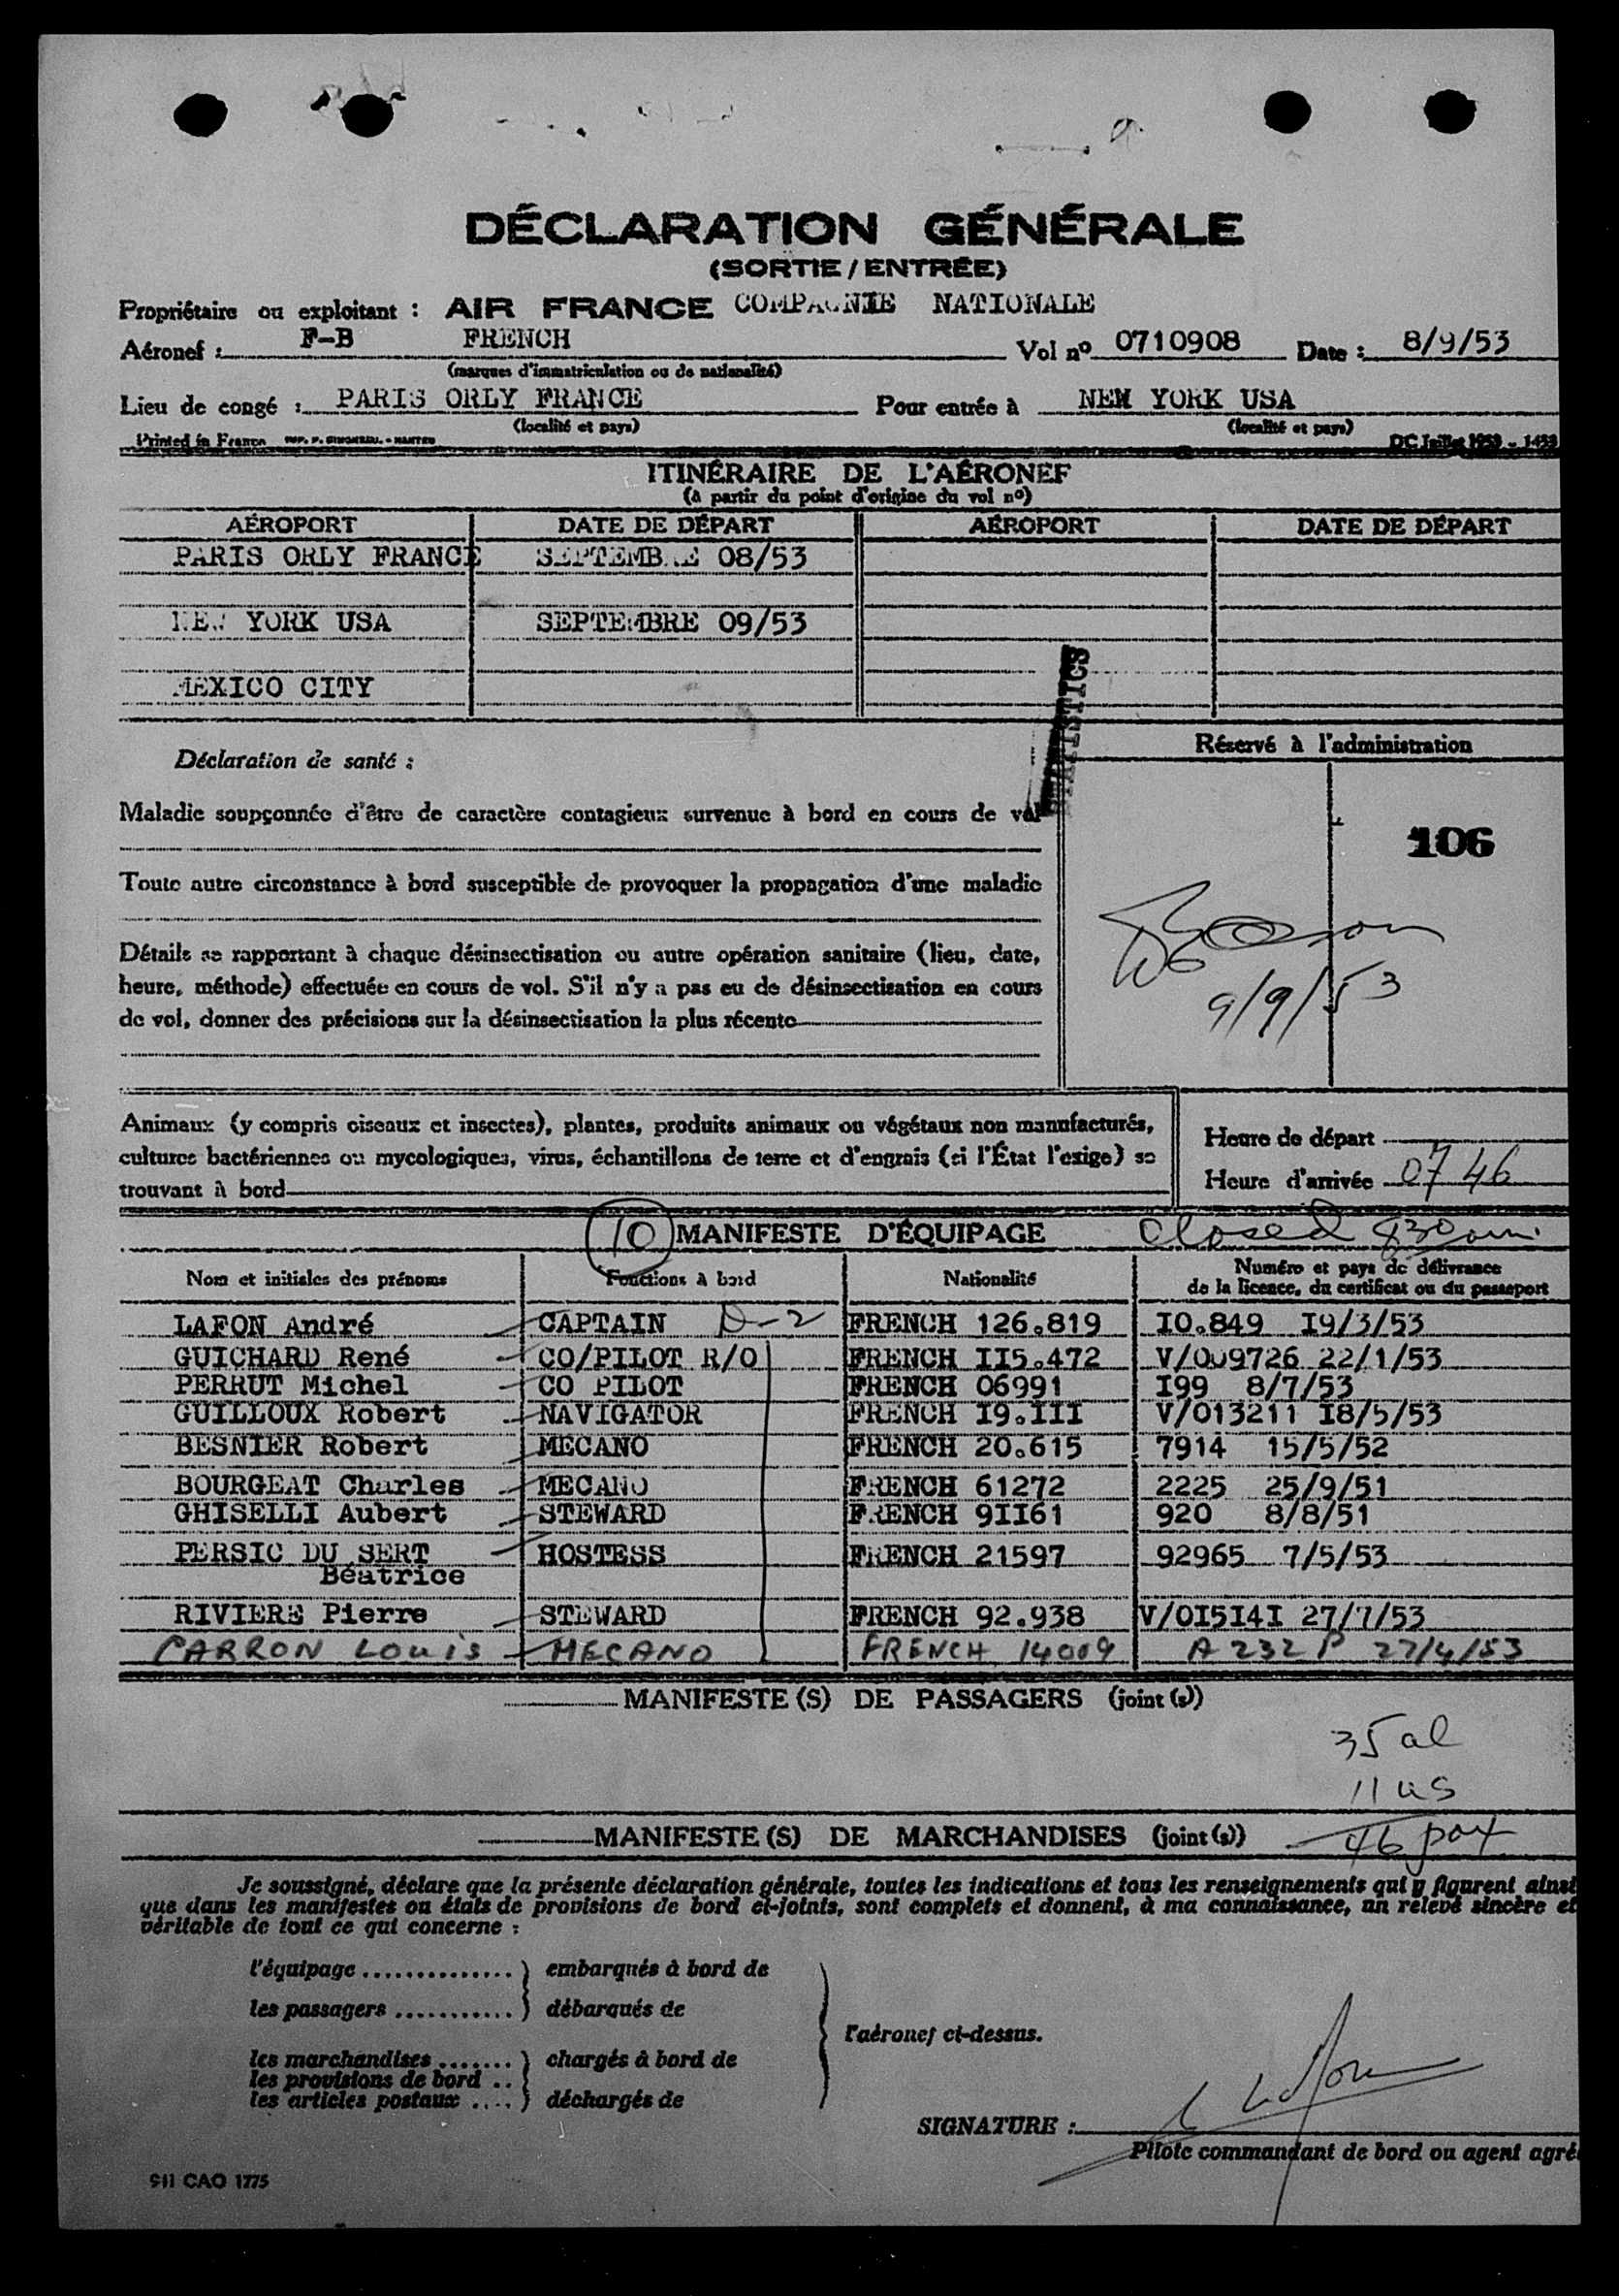 DÉCLARATION GÉNÉRALE
(SORTIE / ENTRÉE)
Propriétaire ou exploitant : AIR FRANCE COMPAGNIE NATIONALE
Aéronef : F-B FRENCH Vol nº 0710908 Date : 8/9/53
(marques d'immatriculation ou de nationalité)
Lieu de congé : PARIS ORLY FRANCE Pour entrée à NEW YORK USA
(localité et pays) (localité et pays)
Printed in France IMP. P. - NANTES DC Juillet 1953 - 1453
ITINÉRAIRE DE L'AÉRONEF
(à partir du point d'origine du vol nº)
AÉROPORT DATE DE DÉPART AÉROPORT DATE DE DÉPART
PARIS ORLY FRANCE SEPTEMBRE 08/53
NEW YORK USA SEPTEMBRE 09/53
MEXICO CITY
STATISTICS
Réservé à l'administration
Déclaration de santé :
Maladie soupçonnée d'être de caractère contagieux survenue à bord en cours de vol
106
Toute autre circonstance à bord susceptible de provoquer la propagation d'une maladie
Détails se rapportant à chaque désinsectisation ou autre opération sanitaire (lieu, date,
heure, méthode) effectuée en cours de vol. S'il n'y a pas eu de désinsectisation en cours
de vol, donner des précisions sur la désinsectisation la plus récente
9/9/53
Animaux (y compris oiseaux et insectes), plantes, produits animaux ou végétaux non manufacturés,
cultures bactériennes ou mycologiques, virus, échantillons de terre et d'engrais (si l'État l'exige) se
trouvant à bord
Heure de départ
Heure d'arrivée 0746
10 MANIFESTE D'ÉQUIPAGE Closed 830 am
Nom et initiales des prénoms Fonctions à bord Nationalité Numéro et pays de délivrance
de la licence, du certificat ou du passeport
LAFON André CAPTAIN D-2 FRENCH 126.819 IO.849 I9/3/53
GUICHARD René CO/PILOT R/O FRENCH II5.472 V/009726 22/1/53
PERRUT Michel CO PILOT FRENCH 06991 I99 8/7/53
GUILLOUX Robert NAVIGATOR FRENCH I9.III V/013211 I8/5/53
BESNIER Robert MECANO FRENCH 20.615 7914 15/5/52
BOURGEAT Charles MECANO FRENCH 61272 2225 25/9/51
GHISELLI Aubert STEWARD FRENCH 9II61 920 8/8/51
PERSIC DU SERT HOSTESS FRENCH 21597 92965 7/5/53
Béatrice
RIVIERE Pierre STEWARD FRENCH 92.938 V/OI5I4I 27/7/53
CARRON LOUIS MECANO FRENCH 14009 A 232 P 27/4/53
MANIFESTE (S) DE PASSAGERS (joint (s))
35 al
11 us
MANIFESTE (S) DE MARCHANDISES (joint (s)) 46 pax
Je soussigné, déclare que la présente déclaration générale, toutes les indications et tous les renseignements qui y figurent ainsi
que dans les manifestes ou états de provisions de bord ci-joints, sont complets et donnent, à ma connaissance, un relevé sincère et
véritable de tout ce qui concerne :
l'équipage .............. ) embarqués à bord de
les passagers ............ ) débarqués de
l'aéronef ci-dessus.
les marchandises ....... ) chargés à bord de
les provisions de bord ..
les articles postaux .... ) déchargés de
SIGNATURE : Lafon
Pilote commandant de bord ou agent agréé
911 CAO 1775